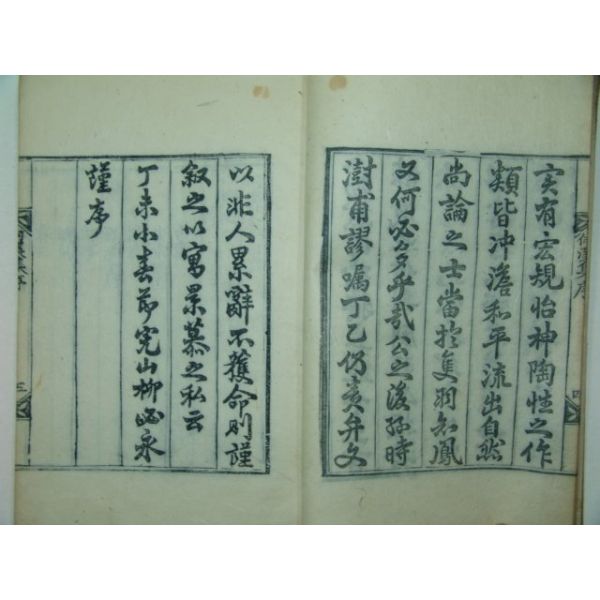 實有宏規怡神陶性之作
類皆冲澹和平流出自然
尚論之士當於隻羽知鳳
又何必多乎哉公之後孫時
澍甫謬囑丁乙仍責弁文
以非人累辭不獲命則謹
叙之以寓景慕之私云
丁未小春節完山柳必永
謹序